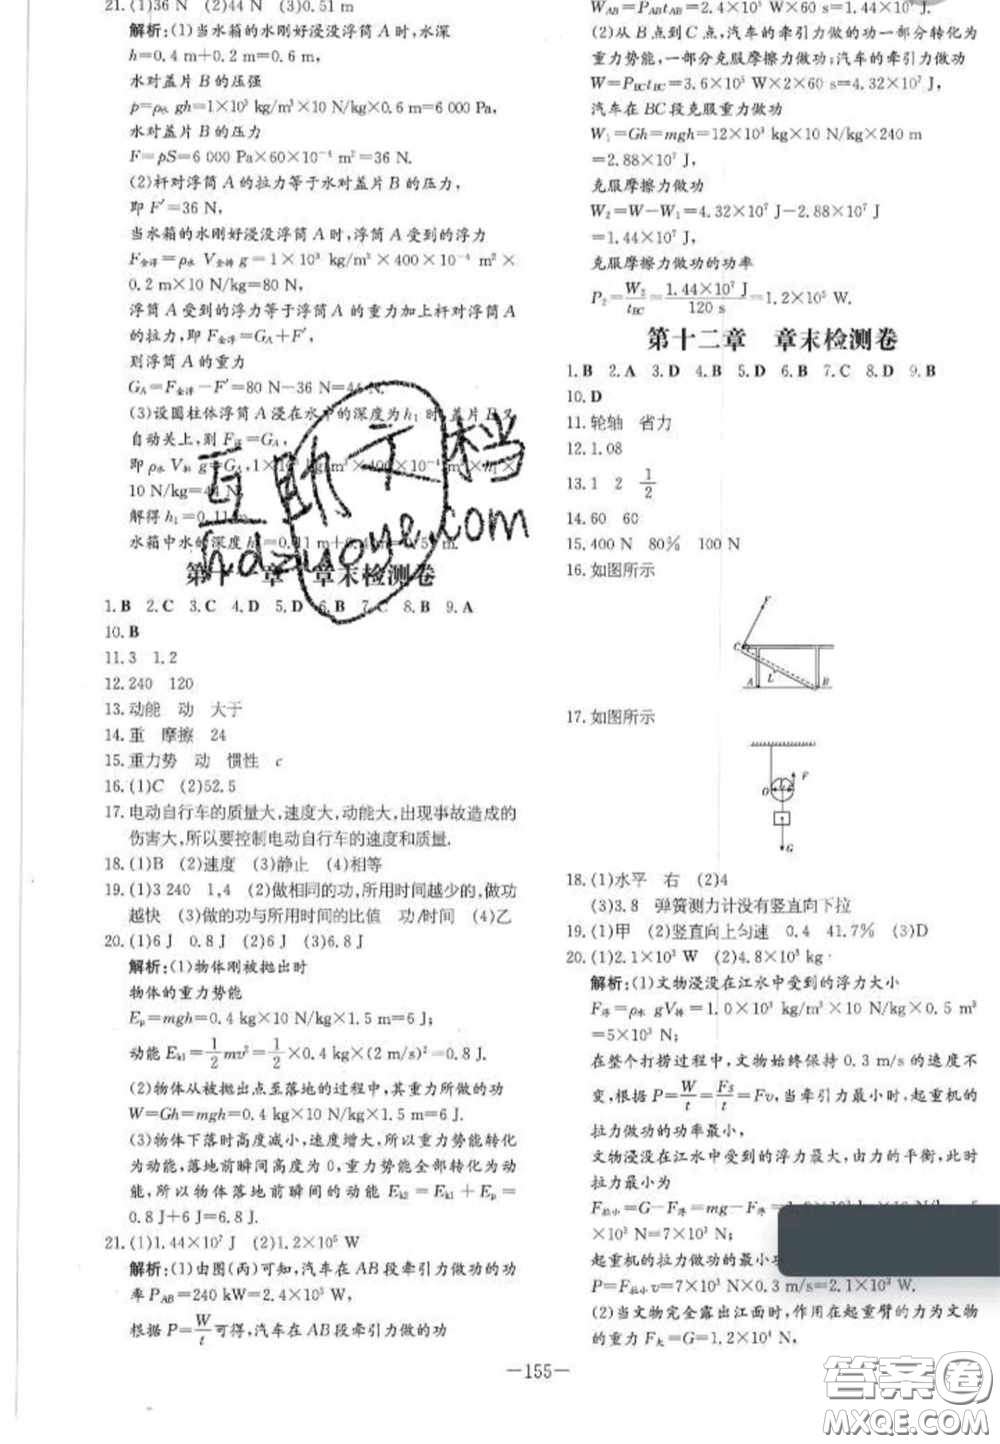 21.(1)36 N (2)44 N (3)0.51 m
解析:(1)当水箱的水刚好浸没浮筒A时,水深
h=0.4 m+0.2 m=0.6 m,
水对盖片B的压强
p=ρ水gh=1×10³ kg/m³×10 N/kg×0.6 m=6 000 Pa,
水对盖片B的压力
F=pS=6 000 Pa×60×10⁻⁴ m²=36 N.
(2)杆对浮筒A的拉力等于水对盖片B的压力,
即F′=36 N,
当水箱的水刚好浸没浮筒A时,浮筒A受到的浮力
F全浮=ρ水V全排g=1×10³ kg/m³×400×10⁻⁴ m²×
0.2 m×10 N/kg=80 N,
浮筒A受到的浮力等于浮筒A的重力加上杆对浮筒A
的拉力,即F全浮=GA+F′,
则浮筒A的重力
GA=F全浮-F′=80 N-36 N=44 N.
(3)设圆柱体浮筒A浸在水中的深度为h₁时,盖片B又
自动关上,则F浮=GA,
即ρ水V排g=GA,1×10³ kg/m³×400×10⁻⁴ m²×h₁×
10 N/kg=44 N,
解得h₁=0.11 m,
水箱中水的深度h=0.11 m+0.4 m=0.51 m.
第十一章 章末检测卷
1.B 2.C 3.C 4.D 5.D 6.B 7.C 8.B 9.A
10.B
11.3 1.2
12.240 120
13.动能 动 大于
14.重 摩擦 24
15.重力势 动 惯性 c
16.(1)C (2)52.5
17.电动自行车的质量大,速度大,动能大,出现事故造成的
伤害大,所以要控制电动自行车的速度和质量.
18.(1)B (2)速度 (3)静止 (4)相等
19.(1)3 240 1,4 (2)做相同的功,所用时间越少的,做功
越快 (3)做的功与所用时间的比值 功/时间 (4)乙
20.(1)6 J 0.8 J (2)6 J (3)6.8 J
解析:(1)物体刚被抛出时
物体的重力势能
Ep=mgh=0.4 kg×10 N/kg×1.5 m=6 J;
动能Ek1=1/2mv²=1/2×0.4 kg×(2 m/s)²=0.8 J.
(2)物体从被抛出点至落地的过程中,其重力所做的功
W=Gh=mgh=0.4 kg×10 N/kg×1.5 m=6 J.
(3)物体下落时高度减小,速度增大,所以重力势能转化
为动能,落地前瞬间高度为0,重力势能全部转化为动
能,所以物体落地前瞬间的动能Ek2=Ek1+Ep=
0.8 J+6 J=6.8 J.
21.(1)1.44×10⁷ J (2)1.2×10⁵ W
解析:(1)由图(丙)可知,汽车在AB段牵引力做功的功
率PAB=240 kW=2.4×10⁵ W,
根据P=W/t可得,汽车在AB段牵引力做的功
WAB=PABtAB=2.4×10⁵ W×60 s=1.44×10⁷ J.
(2)从B点到C点,汽车的牵引力做的功一部分转化为
重力势能,一部分克服摩擦力做功;汽车的牵引力做功
W=PBCtBC=3.6×10⁵ W×2×60 s=4.32×10⁷ J,
汽车在BC段克服重力做功
W₁=Gh=mgh=12×10³ kg×10 N/kg×240 m
=2.88×10⁷ J,
克服摩擦力做功
W₂=W-W₁=4.32×10⁷ J-2.88×10⁷ J
=1.44×10⁷ J,
克服摩擦力做功的功率
P₂=W₂/tBC=1.44×10⁷ J/120 s=1.2×10⁵ W.
第十二章 章末检测卷
1.B 2.A 3.D 4.B 5.D 6.B 7.C 8.D 9.B
10.D
11.轮轴 省力
12.1.08
13.1 2 1/2
14.60 60
15.400 N 80% 100 N
16.如图所示
F
C
A L B
17.如图所示
F
O
G
18.(1)水平 右 (2)4
(3)3.8 弹簧测力计没有竖直向下拉
19.(1)甲 (2)竖直向上匀速 0.4 41.7% (3)D
20.(1)2.1×10³ W (2)4.8×10³ kg
解析:(1)文物浸没在江水中受到的浮力大小
F浮=ρ水gV排=1.0×10³ kg/m³×10 N/kg×0.5 m³
=5×10³ N;
在整个打捞过程中,文物始终保持0.3 m/s的速度不
变,根据P=W/t=Fs/t=Fv,当牵引力最小时,起重机的
拉力做功的功率最小,
文物浸没在江水中受到的浮力最大,由力的平衡,此时
拉力最小为
F拉小=G-F浮=mg-F浮=
×10³ N=7×10³ N;
起重机的拉力做功的最小
P=F拉小v=7×10³ N×0.3 m/s=2.1×10³ W.
(2)当文物完全露出江面时,作用在起重臂的力为文物
的重力F大=G=1.2×10⁴ N,
—155—
互助文档
hdzuoye.com
答案圈
MXQE.COM